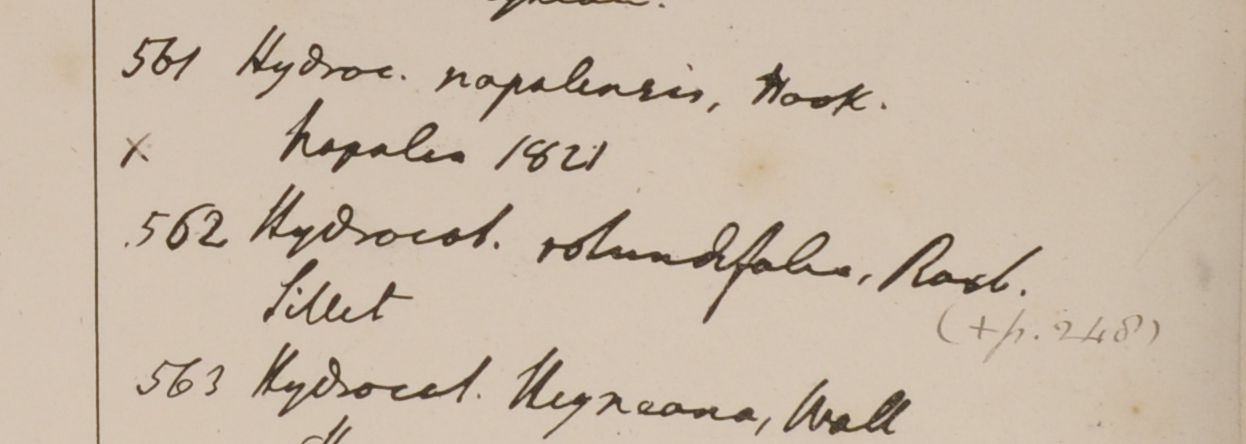 561 Hydroc. napalensis, Hook.
x Napalia 1821
562 Hydrocot. rotundifolia, Roxb.
Sillet
(+ p. 248)
563 Hydrocot. Heyneana, Wall